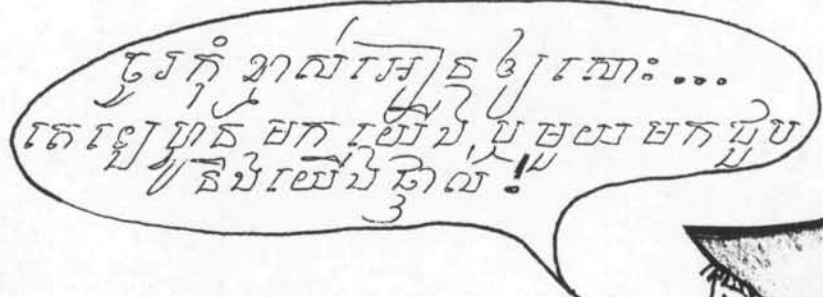 ចូរកុំ ខ្មាស់អៀន ឲ្យ សោះ...
មក យើង, ឬមួយ មក ជួប
នឹងយើងផ្ទាល់!